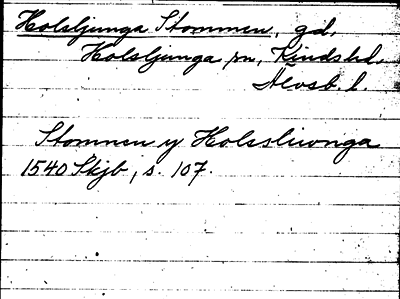 Holsljunga Stommen, gd,
Holsljunga sn, Kinds hd,
Älvsb. l.
Stomnen y Holssliwnga
1540 Skjb, s. 107.